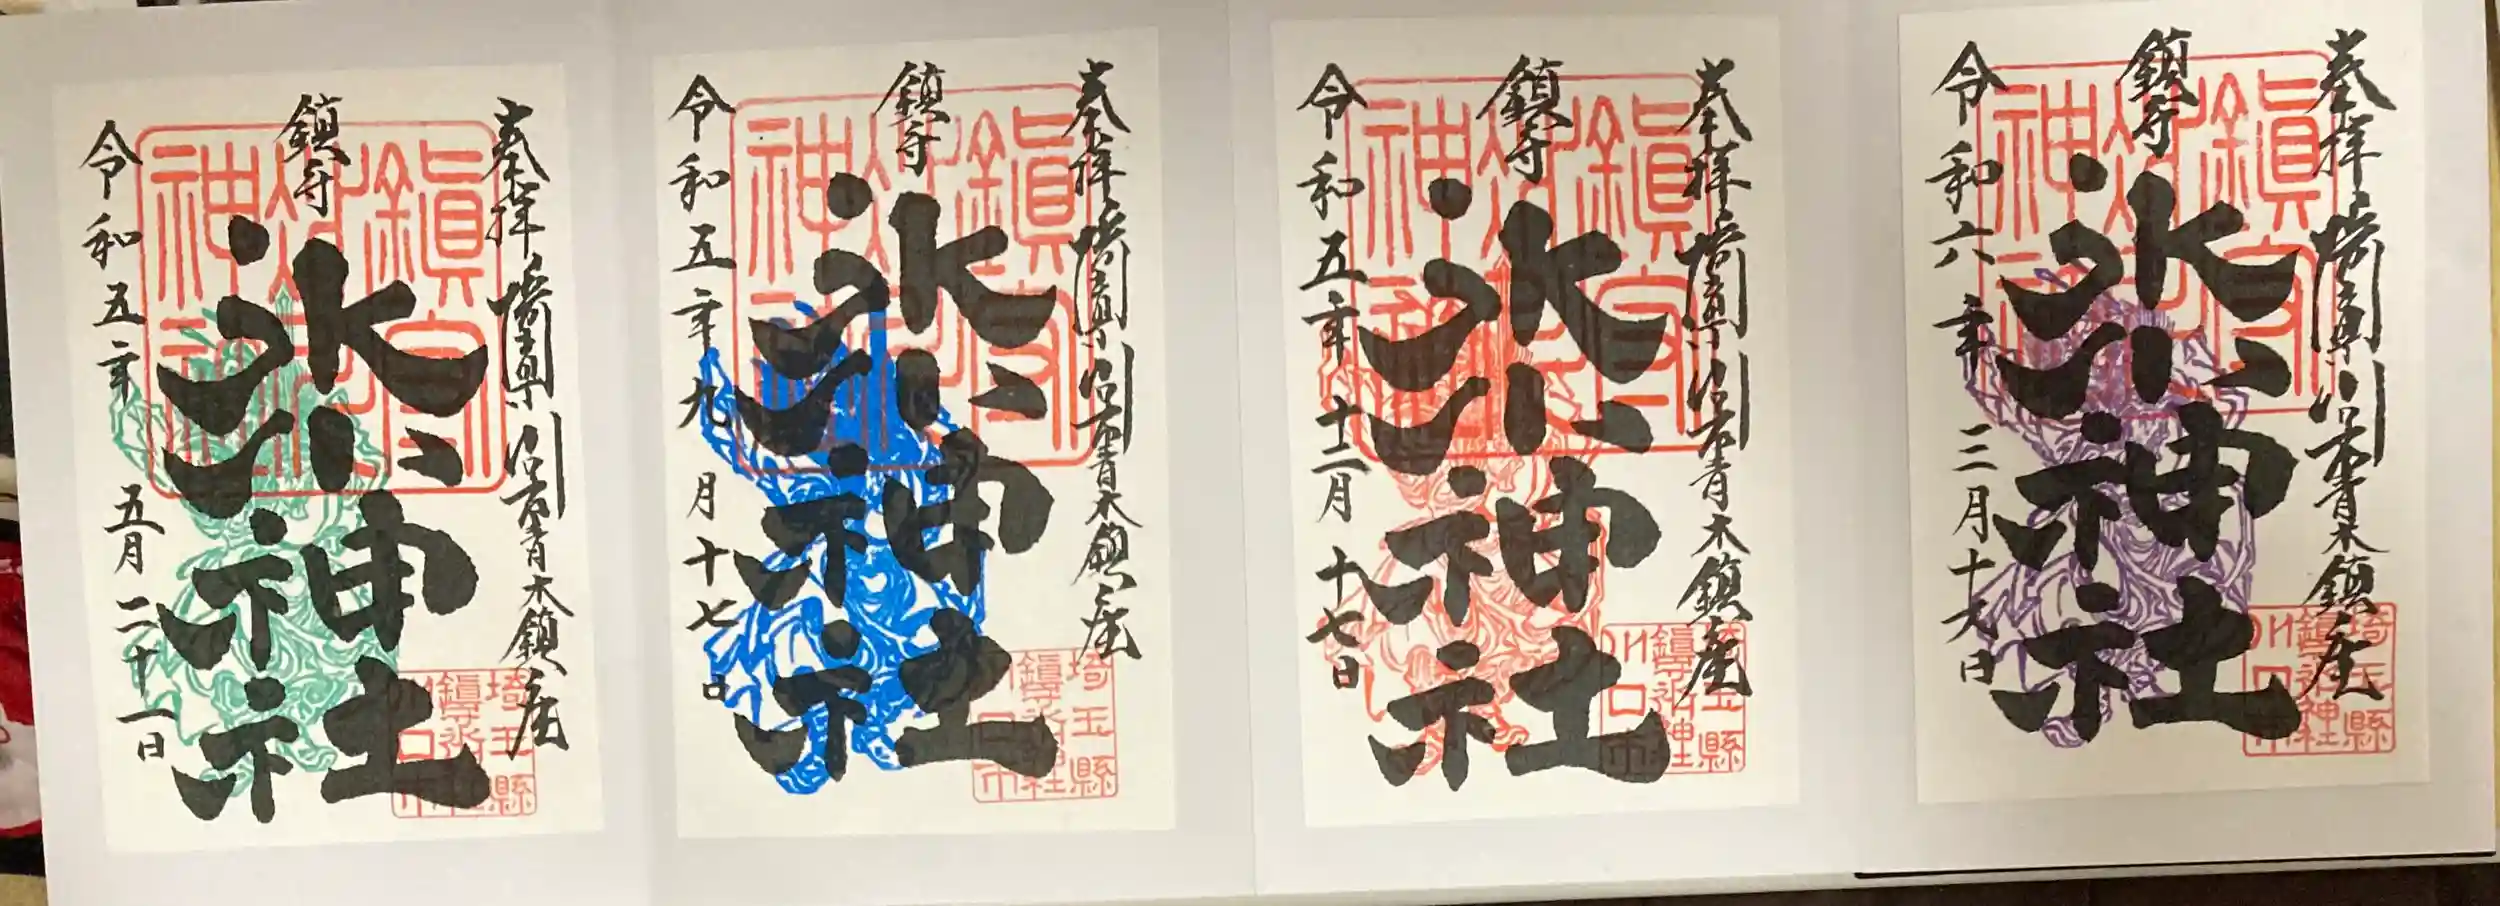 奉拝 埼玉県川口市青木鎮座
鎮守
氷川神社
令和五年 五月二十一日
鎮守
氷川
神社
埼玉縣
川口市
奉拝 埼玉県川口市青木鎮座
鎮守
氷川神社
令和五年 九月十七日
鎮守
氷川
神社
埼玉縣
川口市
奉拝 埼玉県川口市青木鎮座
鎮守
氷川神社
令和五年 十二月十七日
鎮守
氷川
神社
埼玉縣
川口市
奉拝 埼玉県川口市青木鎮座
鎮守
氷川神社
令和六年 三月十六日
鎮守
氷川
神社
埼玉縣
川口市